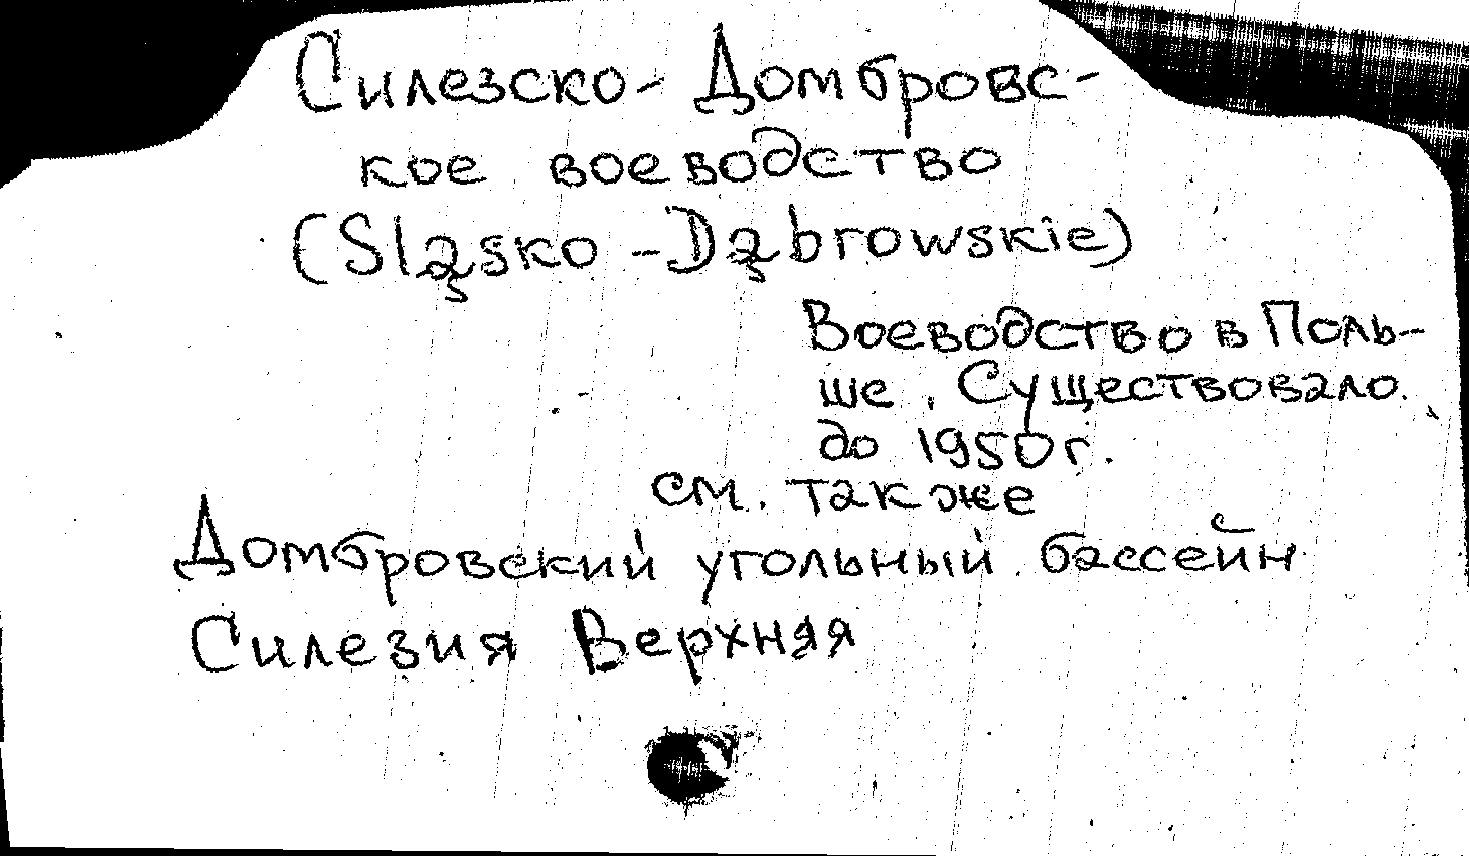 Силезско-Домбровс-
кое воеводство
(Sląsko-Dąbrowskie)
Воеводство в Поль-
ше. Существовало
до 1950г.
см. также
Домбровский угольный бассейн
Силезия Верхняя